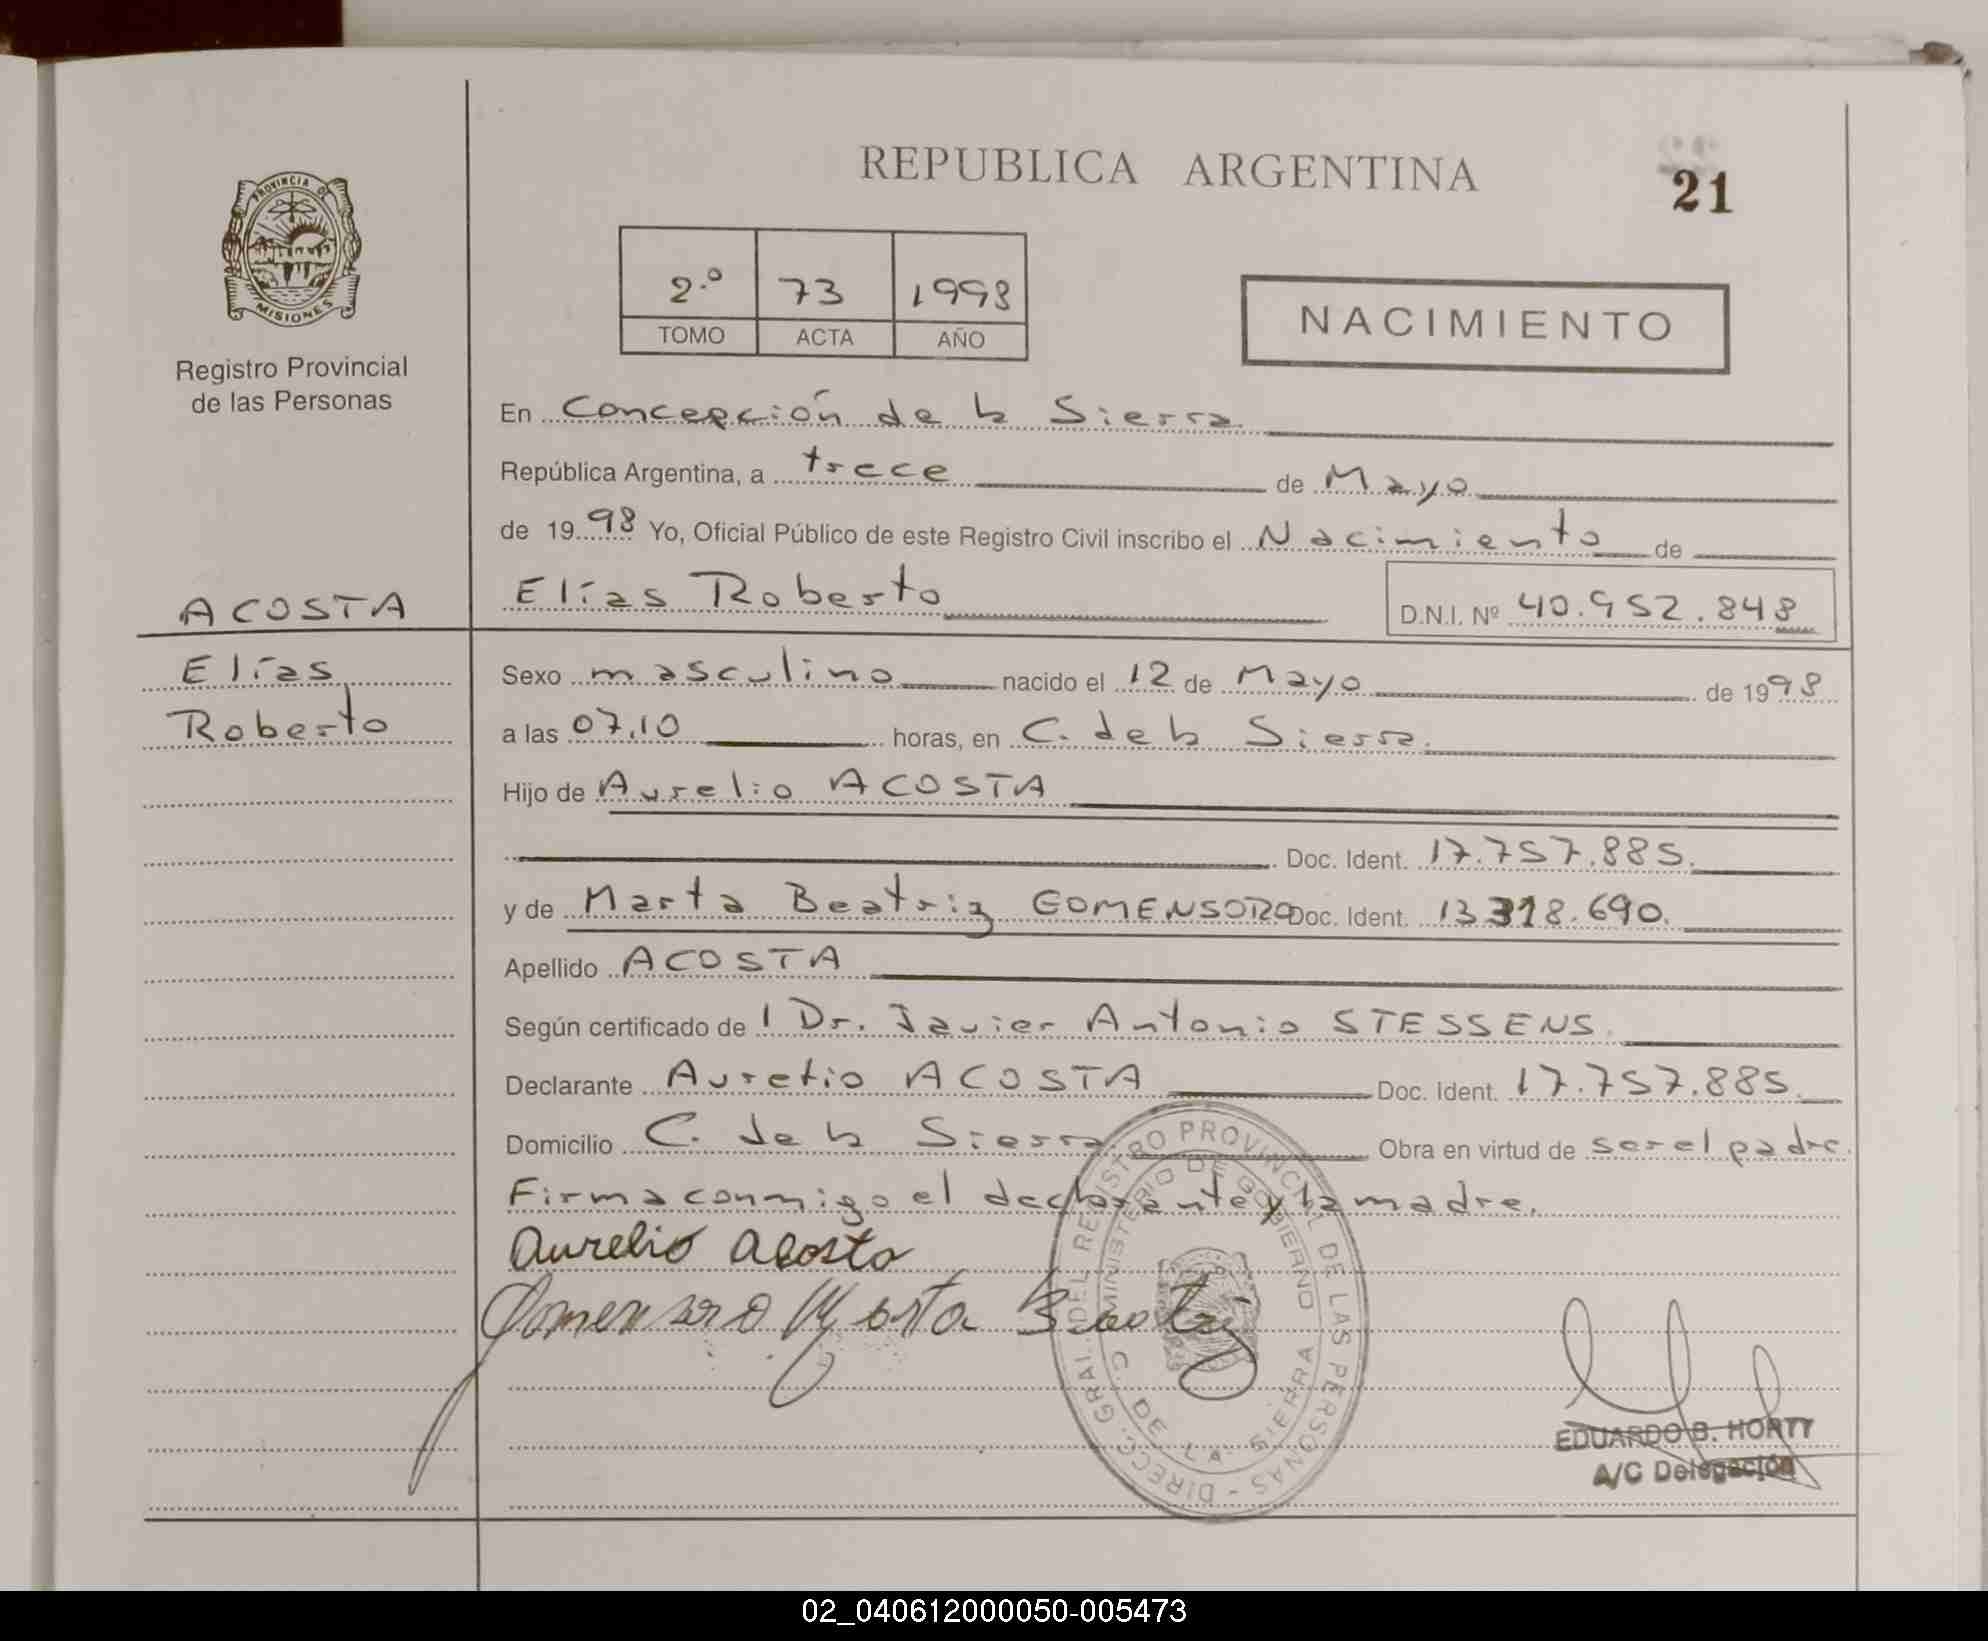 PROVINCIA D
MISIONES
Registro Provincial
de las Personas
REPUBLICA ARGENTINA
21
2.º 73 1998
TOMO ACTA AÑO
NACIMIENTO
En Concepción de la Sierra
República Argentina, a trece de Mayo
de 1998 Yo, Oficial Público de este Registro Civil inscribo el Nacimiento de
ACOSTA
Elías Roberto D.N.I. Nº 40.952.848
Elías
Roberto
Sexo masculino nacido el 12 de Mayo de 1998
a las 07.10 horas, en C. de la Sierra.
Hijo de Aurelio ACOSTA
Doc. Ident. 17.757.885.
y de Marta Beatriz GOMENSORO Doc. Ident. 13.318.690.
Apellido ACOSTA
Según certificado de l Dr. Javier Antonio STESSENS.
Declarante Aurelio ACOSTA Doc. Ident. 17.757.885.
Domicilio C. de la Sierra. Obra en virtud de ser el padre.
Firma conmigo el declarante y la madre.
Aurelio Acosta
Gomensoro Marta Beatriz
DIRECC. GRAL. DEL REGISTRO PROVINCIAL DE LAS PERSONAS -
MINISTERIO DE GOBIERNO
C. DE LA SIERRA
EDUARDO B. HORTY
A/C Delegación
02_040612000050-005473